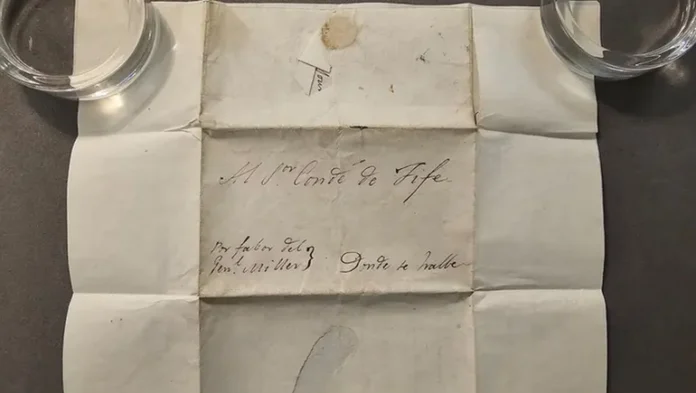 Al Sor Conde de Fife
Por fabor del
Genl. Miller
Donde se halle